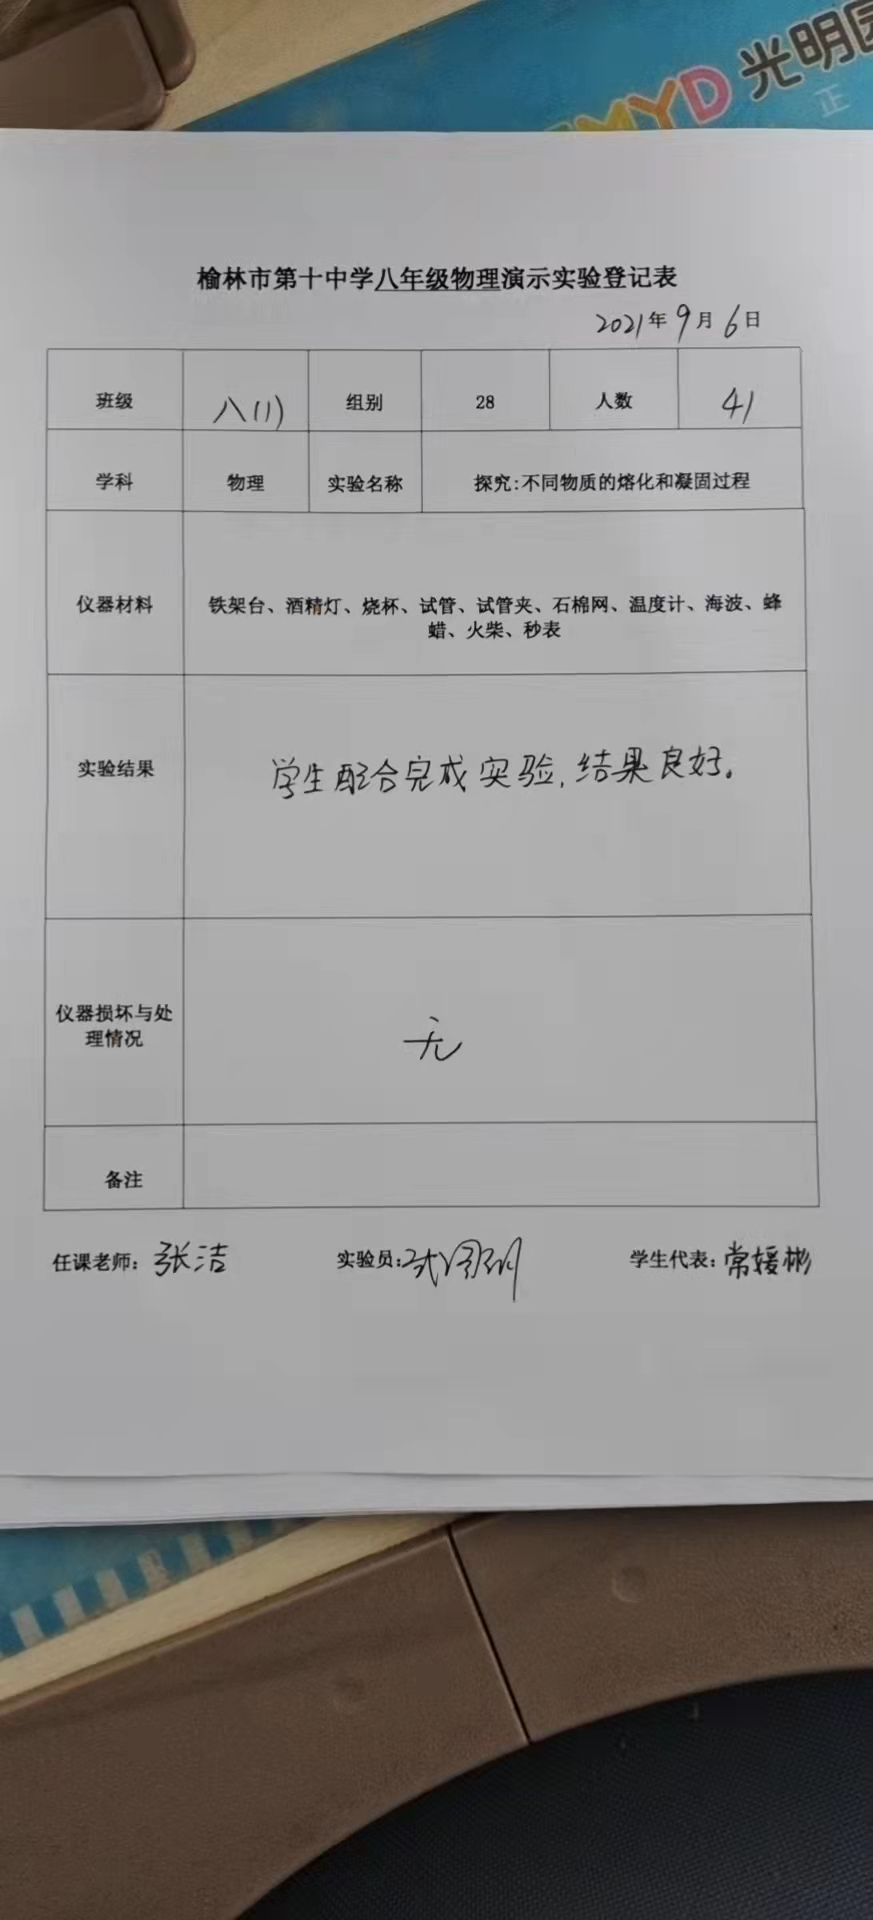 MYD 光明园
正
榆林市第十中学八年级物理演示实验登记表
2021年9月6日
班级 八(1) 组别 28 人数 41
学科 物理 实验名称 探究:不同物质的熔化和凝固过程
仪器材料 铁架台、酒精灯、烧杯、试管、试管夹、石棉网、温度计、海波、蜂
蜡、火柴、秒表
实验结果 学生配合完成实验,结果良好。
仪器损坏与处
理情况
无
备注
任课老师: 张洁 实验员: 学生代表: 常媛彬